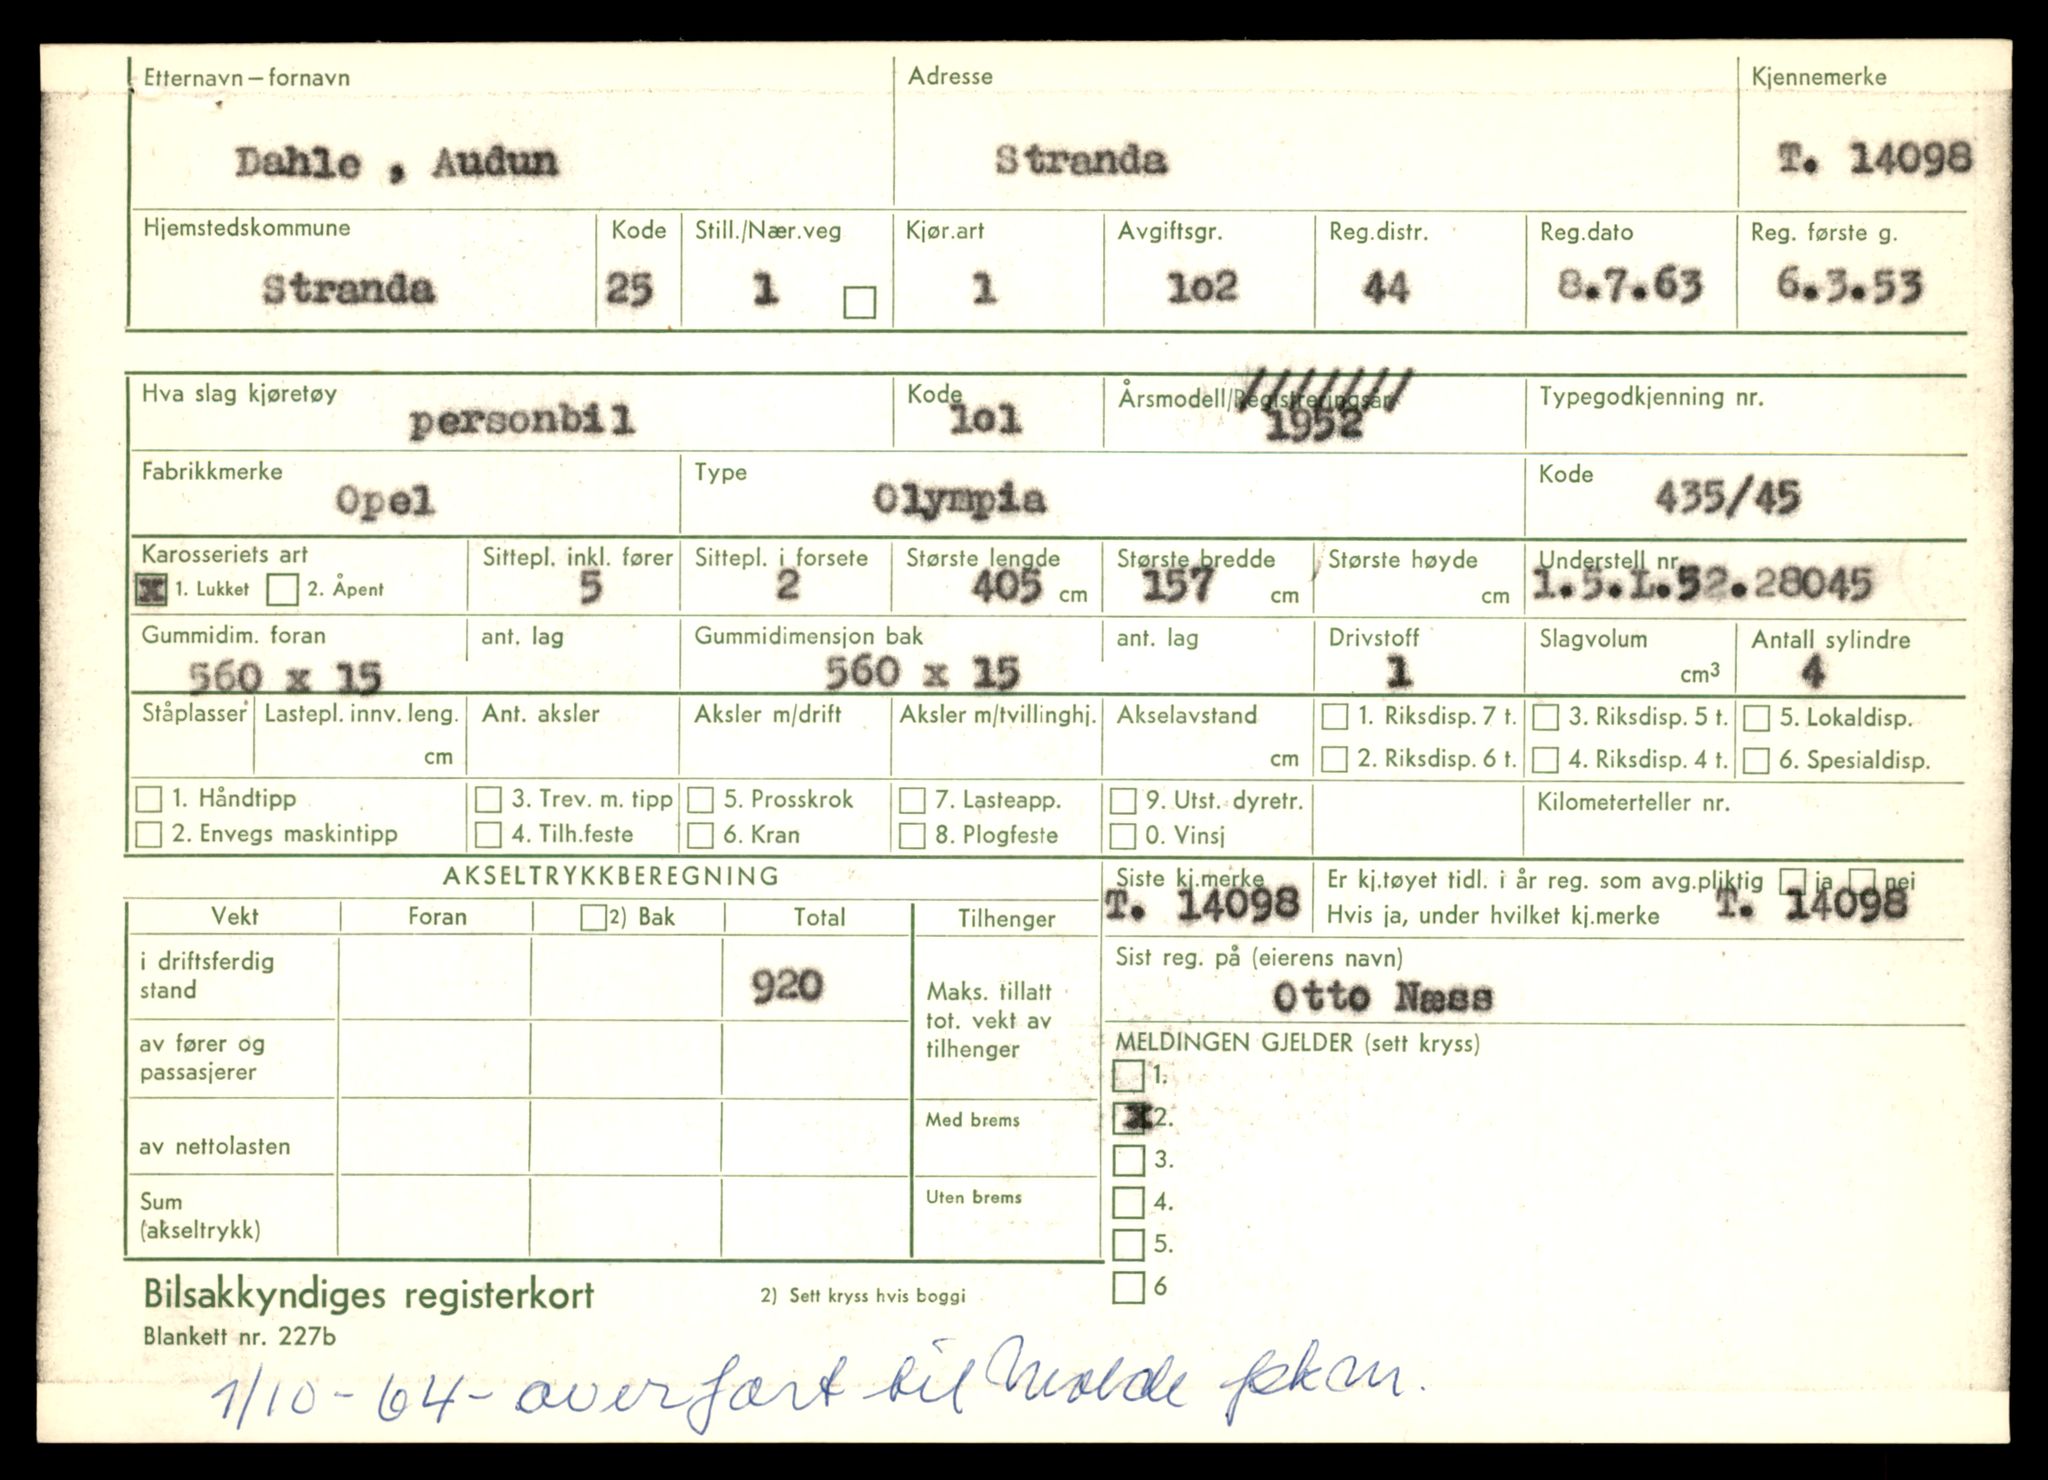 Etternavn – fornavn Adresse Kjennemerke
Dahle , Audun Stranda T. 14098
Hjemstedskommune Kode Still./Nær.veg Kjør.art Avgiftsgr. Reg.distr. Reg.dato Reg. første g.
Stranda 25 1 1 1o2 44 8.7.63 6.3.53
Hva slag kjøretøy Kode Årsmodell/Registreringsår Typegodkjenning nr.
personbil 1o1 1952
Fabrikkmerke Type Kode
Opel Olympia 435/45
Karosseriets art Sittepl. inkl. fører Sittepl. i forsete Største lengde Største bredde Største høyde Understell nr.
x 1. Lukket 2. Åpent 5 2 405 cm 157 cm cm 1.5.L.52.28045
Gummidim. foran ant. lag Gummidimensjon bak ant. lag Drivstoff Slagvolum Antall sylindre
560 x 15 560 x 15 1 cm³ 4
Ståplasser Lastepl. innv. leng. Ant. aksler Aksler m/drift Aksler m/tvillinghj. Akselavstand 1. Riksdisp. 7 t. 3. Riksdisp. 5 t. 5. Lokaldisp.
cm cm 2. Riksdisp. 6 t. 4. Riksdisp. 4 t. 6. Spesialdisp.
1. Håndtipp 3. Trev. m. tipp 5. Prosskrok 7. Lasteapp. 9. Utst. dyretr. Kilometerteller nr.
2. Envegs maskintipp 4. Tilh.feste 6. Kran 8. Plogfeste 0. Vinsj
AKSELTRYKKBEREGNING Siste kj.merke Er kj.tøyet tidl. i år reg. som avg.pliktig ja nei
T. 14098 Hvis ja, under hvilket kj.merke T. 14098
Vekt Foran 2) Bak Total Tilhenger
i driftsferdig Sist reg. på (eierens navn)
stand 920 Maks. tillatt Otto Næss
tot. vekt av
av fører og tilhenger MELDINGEN GJELDER (sett kryss)
passasjerer 1.
Med brems x 2.
av nettolasten 3.
Sum Uten brems 4.
(akseltrykk) 5.
Bilsakkyndiges registerkort 2) Sett kryss hvis boggi 6
Blankett nr. 227b
1/10-64- overført til Molde pkm.